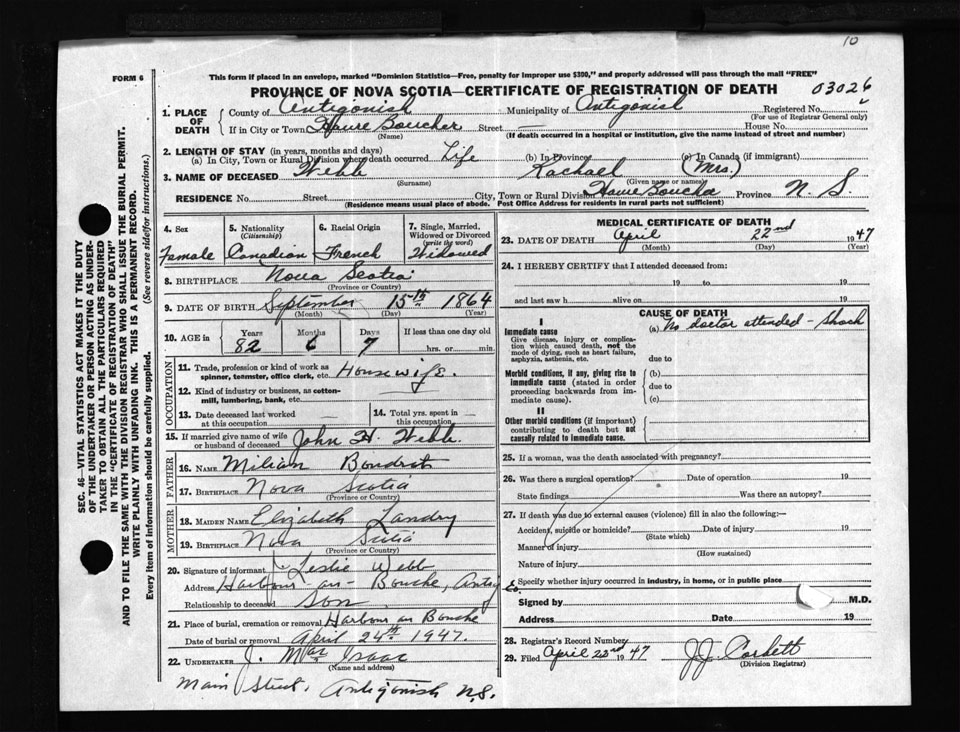 10
FORM 6
This form if placed in an envelope, marked "Dominion Statistics—Free, penalty for improper use $300," and properly addressed will pass through the mail "FREE"
PROVINCE OF NOVA SCOTIA—CERTIFICATE OF REGISTRATION OF DEATH
03026
1. PLACE OF DEATH
County of Antigonish Municipality of Antigonish Registered No.
(For use of Registrar General only)
If in City or Town Havre Boucher Street — House No.
(Name) (If death occurred in a hospital or institution, give the name instead of street and number)
2. LENGTH OF STAY (in years, months and days)
(a) In City, Town or Rural Division where death occurred Life (b) In Province (c) In Canada (if immigrant)
3. NAME OF DECEASED Webb Rachael (Mrs.)
(Surname) (Given name or names)
RESIDENCE No. Street City, Town or Rural Division Havre Boucher Province N. S.
(Residence means usual place of abode. Post Office Address for residents in rural parts not sufficient)
4. Sex 5. Nationality (Citizenship) 6. Racial Origin 7. Single, Married, Widowed or Divorced (write the word)
Female Canadian French Widowed
8. BIRTHPLACE Nova Scotia
(Province or Country)
9. DATE OF BIRTH September 15th 1864
(Month) (Day) (Year)
10. AGE in Years Months Days If less than one day old
82 6 7 hrs. or min.
OCCUPATION
11. Trade, profession or kind of work as spinner, teamster, office clerk, etc. Housewife.
12. Kind of industry or business, as cotton-mill, lumbering, bank, etc.
13. Date deceased last worked at this occupation —
14. Total yrs. spent in this occupation —
15. If married give name of wife or husband of deceased John H. Webb.
FATHER
16. NAME Miliam Boudrot
17. BIRTHPLACE Nova Scotia
(Province or Country)
MOTHER
18. MAIDEN NAME Elizabeth Landry
19. BIRTHPLACE Nova Scotia
(Province or Country)
20. Signature of informant Leslie Webb
Address Harbour-au-Bouche, Antig Co.
Relationship to deceased son
21. Place of burial, cremation or removal Harbour au Bouche
Date of burial or removal April 24th 1947.
22. UNDERTAKER J. MacIsaac
(Name and address)
Main Street. Antigonish N.S.
MEDICAL CERTIFICATE OF DEATH
23. DATE OF DEATH April 22nd 1947
(Month) (Day) (Year)
24. I HEREBY CERTIFY that I attended deceased from:
19 to 19
and last saw h alive on 19
CAUSE OF DEATH
I
Immediate cause
Give disease, injury or complication which caused death, not the mode of dying, such as heart failure, asphyxia, asthenia, etc.
(a) No doctor attended - Shock
due to
Morbid conditions, if any, giving rise to immediate cause (stated in order proceeding backwards from immediate cause).
(b)
due to
(c)
II
Other morbid conditions (if important) contributing to death but not causally related to immediate cause.
25. If a woman, was the death associated with pregnancy?
26. Was there a surgical operation? Date of operation 19
State findings Was there an autopsy?
27. If death was due to external causes (violence) fill in also the following:—
Accident, suicide or homicide? Date of injury 19
(State which)
Manner of injury
(How sustained)
Nature of injury
Specify whether injury occurred in industry, in home, or in public place
Signed by M.D.
Address Date 19
28. Registrar's Record Number
29. Filed April 23rd 1947 J.J. Corbett
(Division Registrar)
SEC. 46—VITAL STATISTICS ACT MAKES IT THE DUTY
OF THE UNDERTAKER OR PERSON ACTING AS UNDER-
TAKER TO OBTAIN ALL THE PARTICULARS REQUIRED
IN THE "CERTIFICATE OF REGISTRATION OF DEATH"
AND TO FILE THE SAME WITH THE DIVISION REGISTRAR WHO SHALL ISSUE THE BURIAL PERMIT.
WRITE PLAINLY WITH UNFADING INK. THIS IS A PERMANENT RECORD.
Every item of information should be carefully supplied. (See reverse side for instructions.)